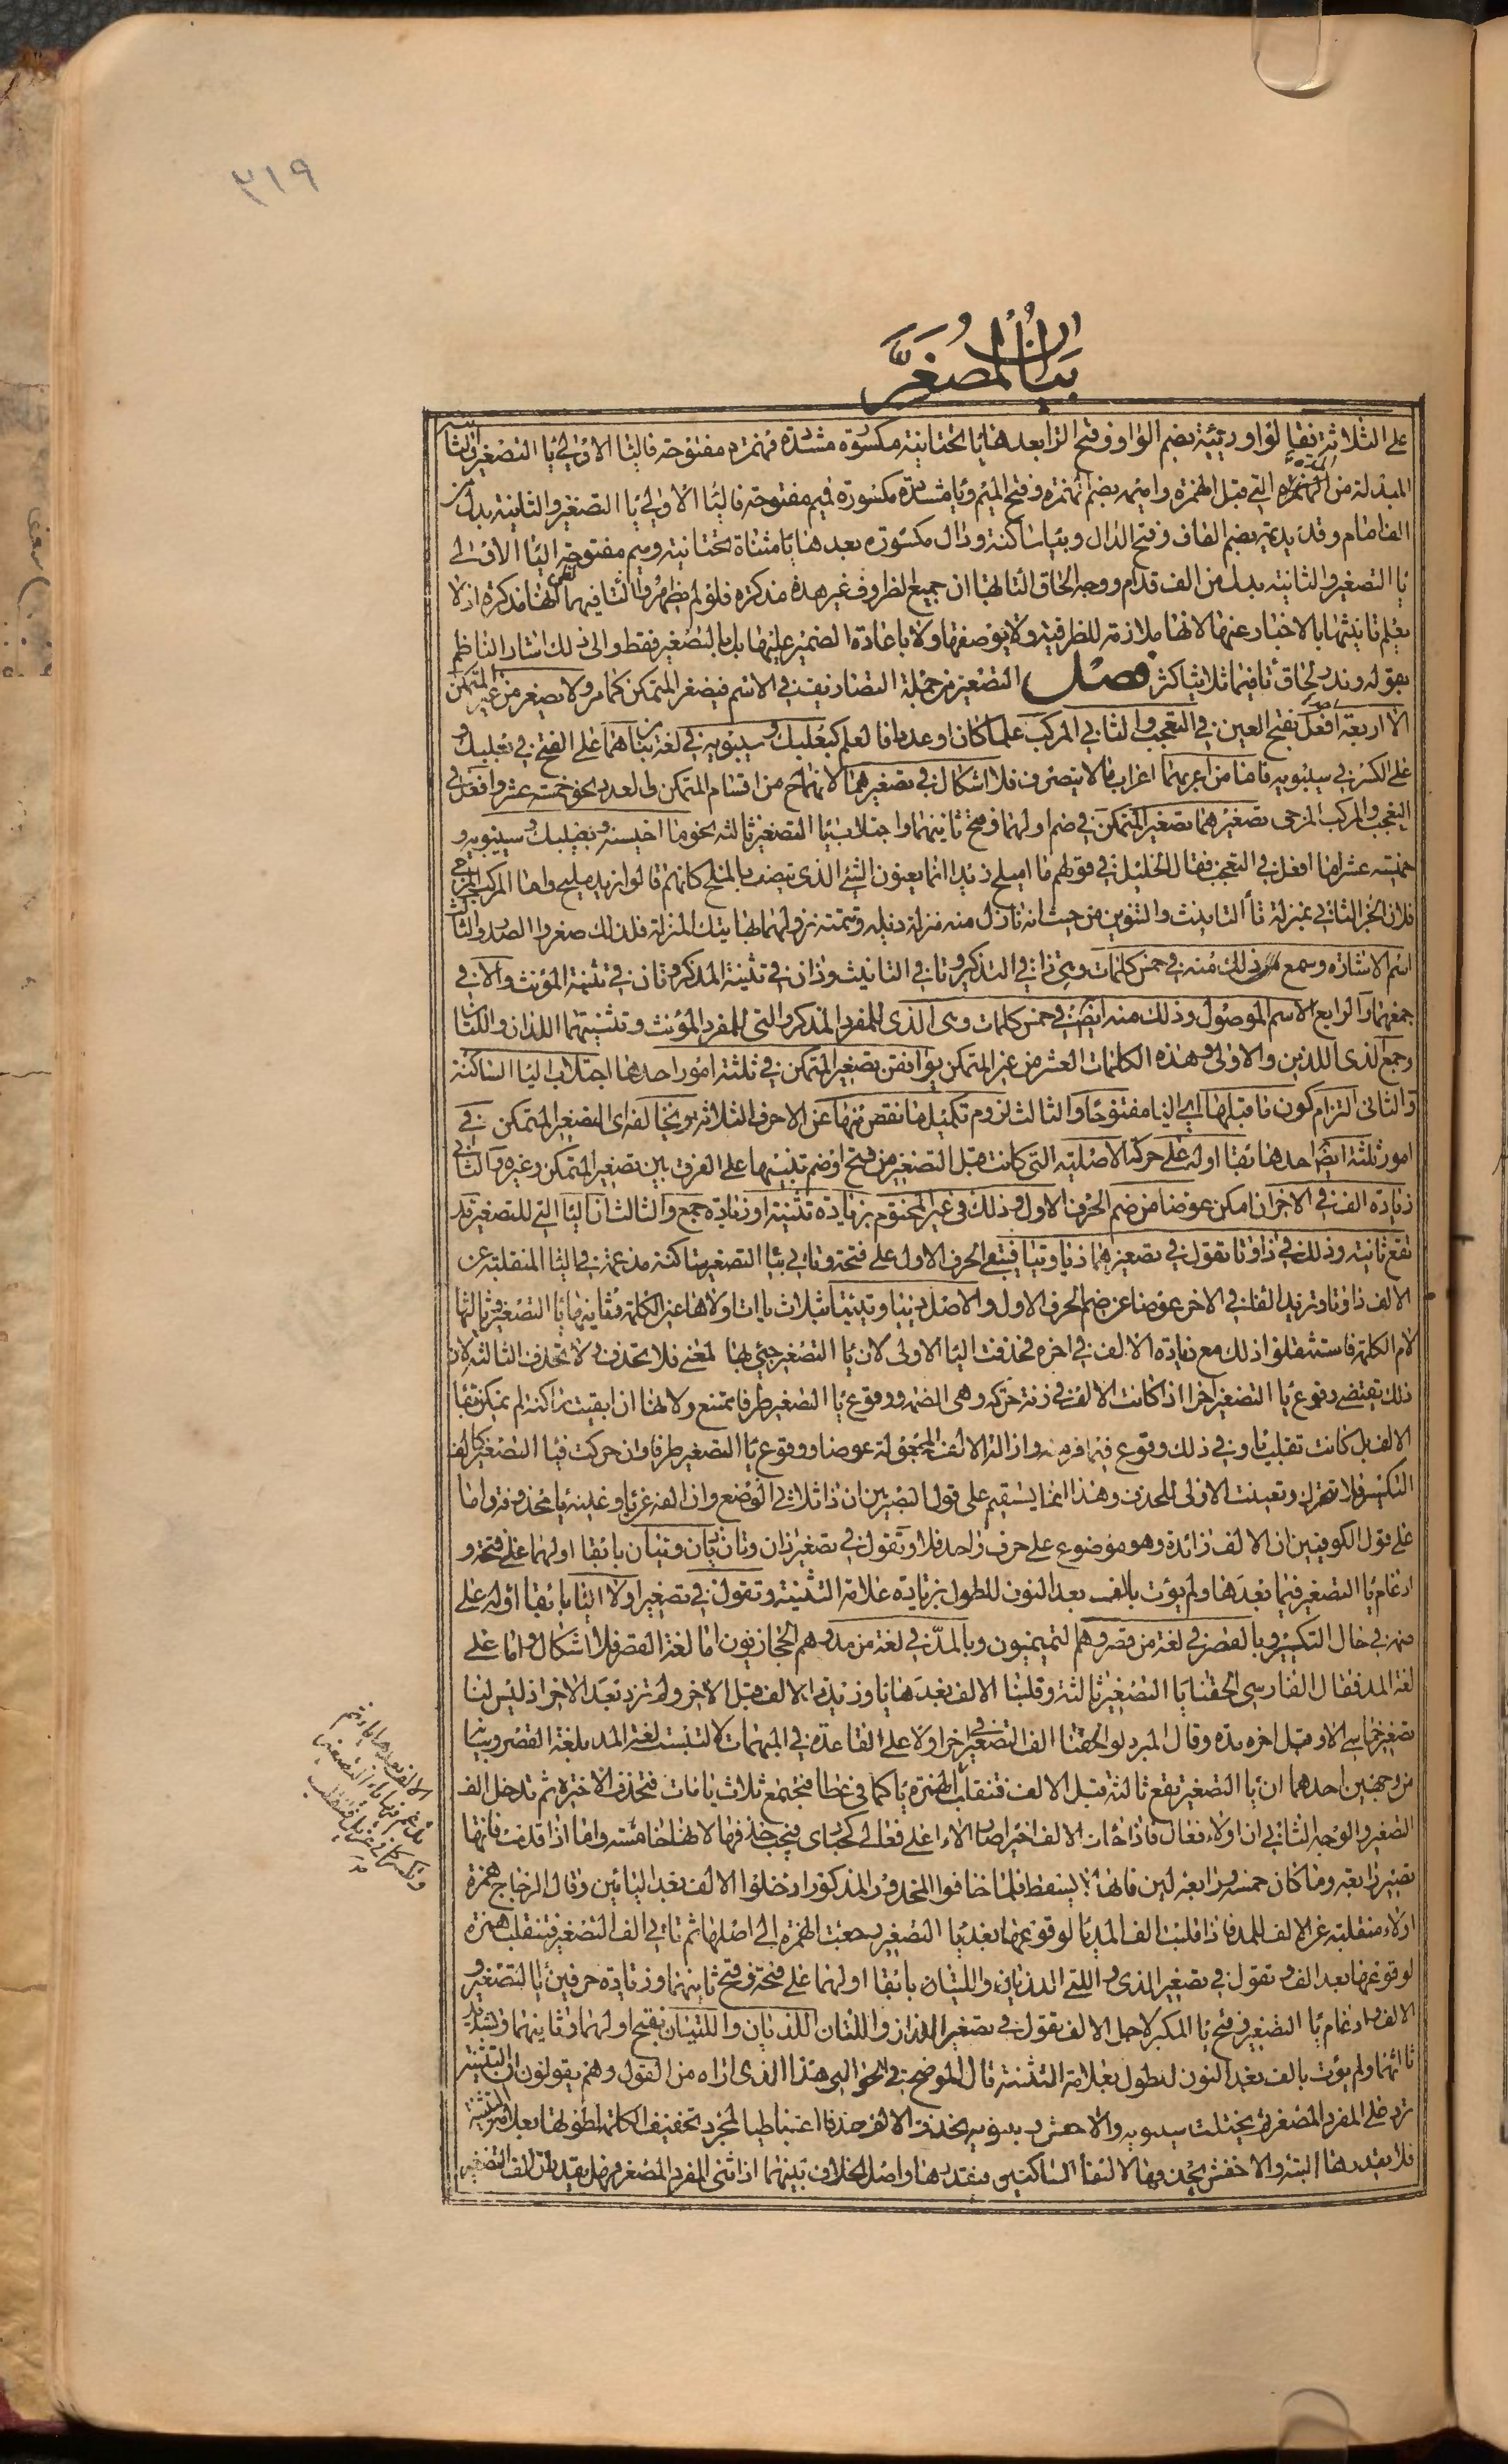 ٣١٩
بَيٰانُ الْمُصَغَّرِ
على الثلاثة فيقال وريّئة بضم الواو وفتح الراء بعدها ياء تحتانية مكسورة مشددة فهمزه مفتوحة فالياء الاولى ياء التصغير والثانية
المبدلة من المدة التى قبل الهمزة واميّمه بضم الهمزه وفتح الميم وياء مشددة مكسورة فميم مفتوحة فالياء الاولى ياء التصغير والثانية بدل من
الف امام وقديديمة بضم القاف وفتح الدال وبياء ساكنة ودال مكسوره بعدها ياء مثناة تحتانيه وميم مفتوحة الياء الاولى
ياء التصغير والثانية بدل من الف قدام ووجه الحاق التاء بها ان جميع الظروف غير هذه مذكره فلو لم يظهروا التاء فيهما لظن انها مذكره اذ لا
يعلم تانيثها بالاخبار عنها لانها ملازمة للظرفية ولا بوصفها ولا باعادة الضمير عليها بل بالتصغير فقط والى ذلك اشار الناظم
بقوله وندر لحاق تا فيما ثلاثيا كثر فصل التصغير من جملة التصاريف فى الاسم فيصغر المتمكن كما مر ولا يصغر من غير المتمكن
الا اربعة افعل بفتح العين فى التعجب والثانى المركب علما كان او عددا فالعلم كبعلبك وسيبويه فى لغة من بناهما على الفتح فى بعلبك و
على الكسر فى سيبويه فاما من اعربهما اعراب ما لا ينصرف فلا اشكال فى تصغيرهما لانهما ح من اقسام المتمكن والعدد نحو خمسة عشر وافعل فى
التعجب والمركب المزجى تصغيرهما تصغير المتمكن فى ضم اولهما وفتح ثانيهما واجتلاب ياء التصغير ثالثه نحو ما احيسنه وبعيلبك وسييبويه و
خميسة عشر اما افعل فى التعجب فقال الخليل فى قولهم ما اميلح زيدا انما يعنون الشئ الذى تصفه بالملح كانهم قالوا زيد مليح واما المركب المزجى
فلان الجزء الثانى بمنزلة تاء التانيث والتنوين من حيث انه نازل منه منزلة ذيله وتتمته نزولهما بها بتلك المنزلة فلذلك صغروا الصدر والثالث
اسم الاشاره وسمع ذلك منه فى خمس كلمات وهى ذا فى التذكير وتا فى التانيث وذان فى تثنية المذكر وتان فى تثنية المؤنث والاء فى
جمعهما والرابع الاسم الموصول وذلك منه ايضا فى خمس كلمات وهى الذى للمفرد المذكر والتى للمفرد المؤنث وتثنيتهما اللذان واللتان
وجمع الذى اللذين والاولى وهذه الكلمات العشر من غير المتمكن يوافقن تصغير المتمكن فى ثلثة امور احدها اجتلاب الياء الساكنة
والثانى التزام كون ما قبلها اى الياء مفتوحا والثالث لزوم تكميل ما نقص منها عن الاحرف الثلاثه ويخالفه اى تصغير المتمكن فى
امور ثلثة ايضا احدها بقاء اوله على حركته الاصلية التى كانت قبل التصغير من فتح او ضم تنبيها على الفرق بين تصغير المتمكن وغيره والثانى
زيادة الف فى الاخر ان امكن عوضا من ضم الحرف الاول وذلك فى غير المختوم بزيادة تثنية او زيادة جمع والثالث ان الياء التى للتصغير قد
تقع ثانية وذلك فى ذا وتا تقول فى تصغيرهما ذيا وتيا فيبقى الحرف الاول على فتحه وتاتى بياء التصغير ساكنه مدغمة فى الياء المنقلبة عن
الالف ذا وتا وتزيد الفا فى الاخر عوضا عن ضم الحرف الاول والاصل ذييا وتييا بثلاث ياءات اولاها عين الكلمة وثانيها ياء التصغير وثالثها
لام الكلمة فاستثقلوا ذلك مع زيادة الالف فى اخره فحذفت الياء الاولى لان ياء التصغير جئ بها لمعنى فلا تحذف ولا تحذف الثالثه لان
ذلك يقتضى وقوع ياء التصغير اخرا اذ كانت الالف فى زنة حركة وهى الضمه ووقوع ياء التصغير طرفا ممتنع ولانها ان ابقيت ساكنة لم يمكن بقاء
الالف بل كانت تقلب ياء وفى ذلك وقوع فيما فر منه وازالة الالف المجعولة عوضا ووقوع ياء التصغير طرفا وان حركت فياء التصغير كالف
التكسير فلا تحرك وتعينت الاولى للحذف وهذا انما يستقيم على قول البصريين ان ذا ثلاثى الوضع وان الفه عن ياء وعينه ياء محذوفه واما
على قول الكوفيين ان الالف زائدة وهو موضوع على حرف واحد فلا وتقول فى تصغير ذان وتان ذيان وتيان بابقاء اولهما على فتحه و
ادغام ياء التصغير فيما بعدها ولم يؤت بالف بعد النون للطول بزيادة علامة التثنية وتقول فى تصغير اولاء اليا بابقاء اوله على
ضمه فى حال التكبير وبالقصر فى لغة من قصر وهم التميميون وبالمد فى لغة من مد وهم الحجازيون اما لغة القصر فلا اشكال واما على
لغة المد فقال الفارسى الحقنا ياء التصغير ثالثة وقلبنا الالف بعدها ياء وزيدت الالف قبل الاخر ولم تزد بعد الاخر اذ ليس لنا
تصغير خماسى الا وقبل اخره مدة وقال المبرد لو الحقنا الف التصغير فى اخر اولاء على القاعدة فى المبهمات لالتبست لغة المد بلغة القصر وبيانه
من وجهين احدهما ان ياء التصغير تقع ثالثة قبل الالف فتنقلب الهمزة ياء كما فى عطاء فتجتمع ثلاث ياءات فتحذف الاخيرة ثم تدخل الف
التصغير والوجه الثانى ان اولاء فعال فاذا جاءت الالف اخرا صار الاء على فعالى كحبارى فيجب حذفها لانها خامسة واما اذا قدمت فانها
تصير رابعة وما كان خمسة ورابعه لين فانه لا يسقط فلما خافوا المحذور المذكور ادخلوا الالف بعد اليائين وقال الزجاج همزة
اولاء منقلبة عن الالف للمد فاذا قلبت الف المد ياء لوقوعها بعد ياء التصغير رجعت الهمزة الى اصلها ثم تاتى الف التصغير فتنقلب همزة
لوقوعها بعد الف وتقول فى تصغير الذى والتى اللذيا واللتيا بابقاء اولهما على فتحه وفتح ثانيهما وزيادة حرفين ياء التصغير و
الالف وادغام ياء التصغير وفتح ياء المكبر لاجل الالف وتقول فى تصغير اللذان واللتان اللذيان واللتيان بفتح اولهما وثانيهما وتشديد
ثالثهما ولم يؤت بالف بعد النون للطول بعلامة التثنية قال الموضح فى الحواشى هذا الذى اراه من القول وهم يقولون ان التثنية
ترد على المفرد المصغر ثم يختلف سيبويه والاخفش فسيبويه يحذف الالف حذفا اعتباطيا لمجرد تخفيف الكلمة لطولها بعلامة التثنية
فلا يقدرها البتة والاخفش يحذفها لالتقاء الساكنين فيقدرها واصل الخلاف بينهما اذا ثنى المفرد المصغر هل يقدر ان الف التصغير